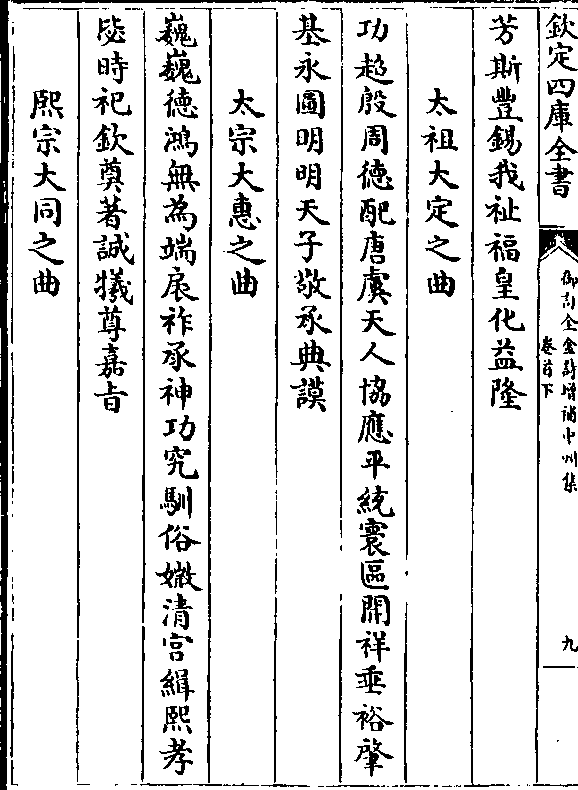 欽定四庫全書
御訂全金詩增補中州集
卷首下
九
芳斯豐錫我祉福皇化益隆
太祖大定之曲
功超殷周德配唐虞天人協應平統寰區開祥垂裕肇
基永圖明明天子敬承典謨
太宗大惠之曲
巍巍德鴻無為端扆祚承神功究馴俗媺清宮緝熙孝
毖時祀欽奠著誠犧尊嘉旨
熙宗大同之曲